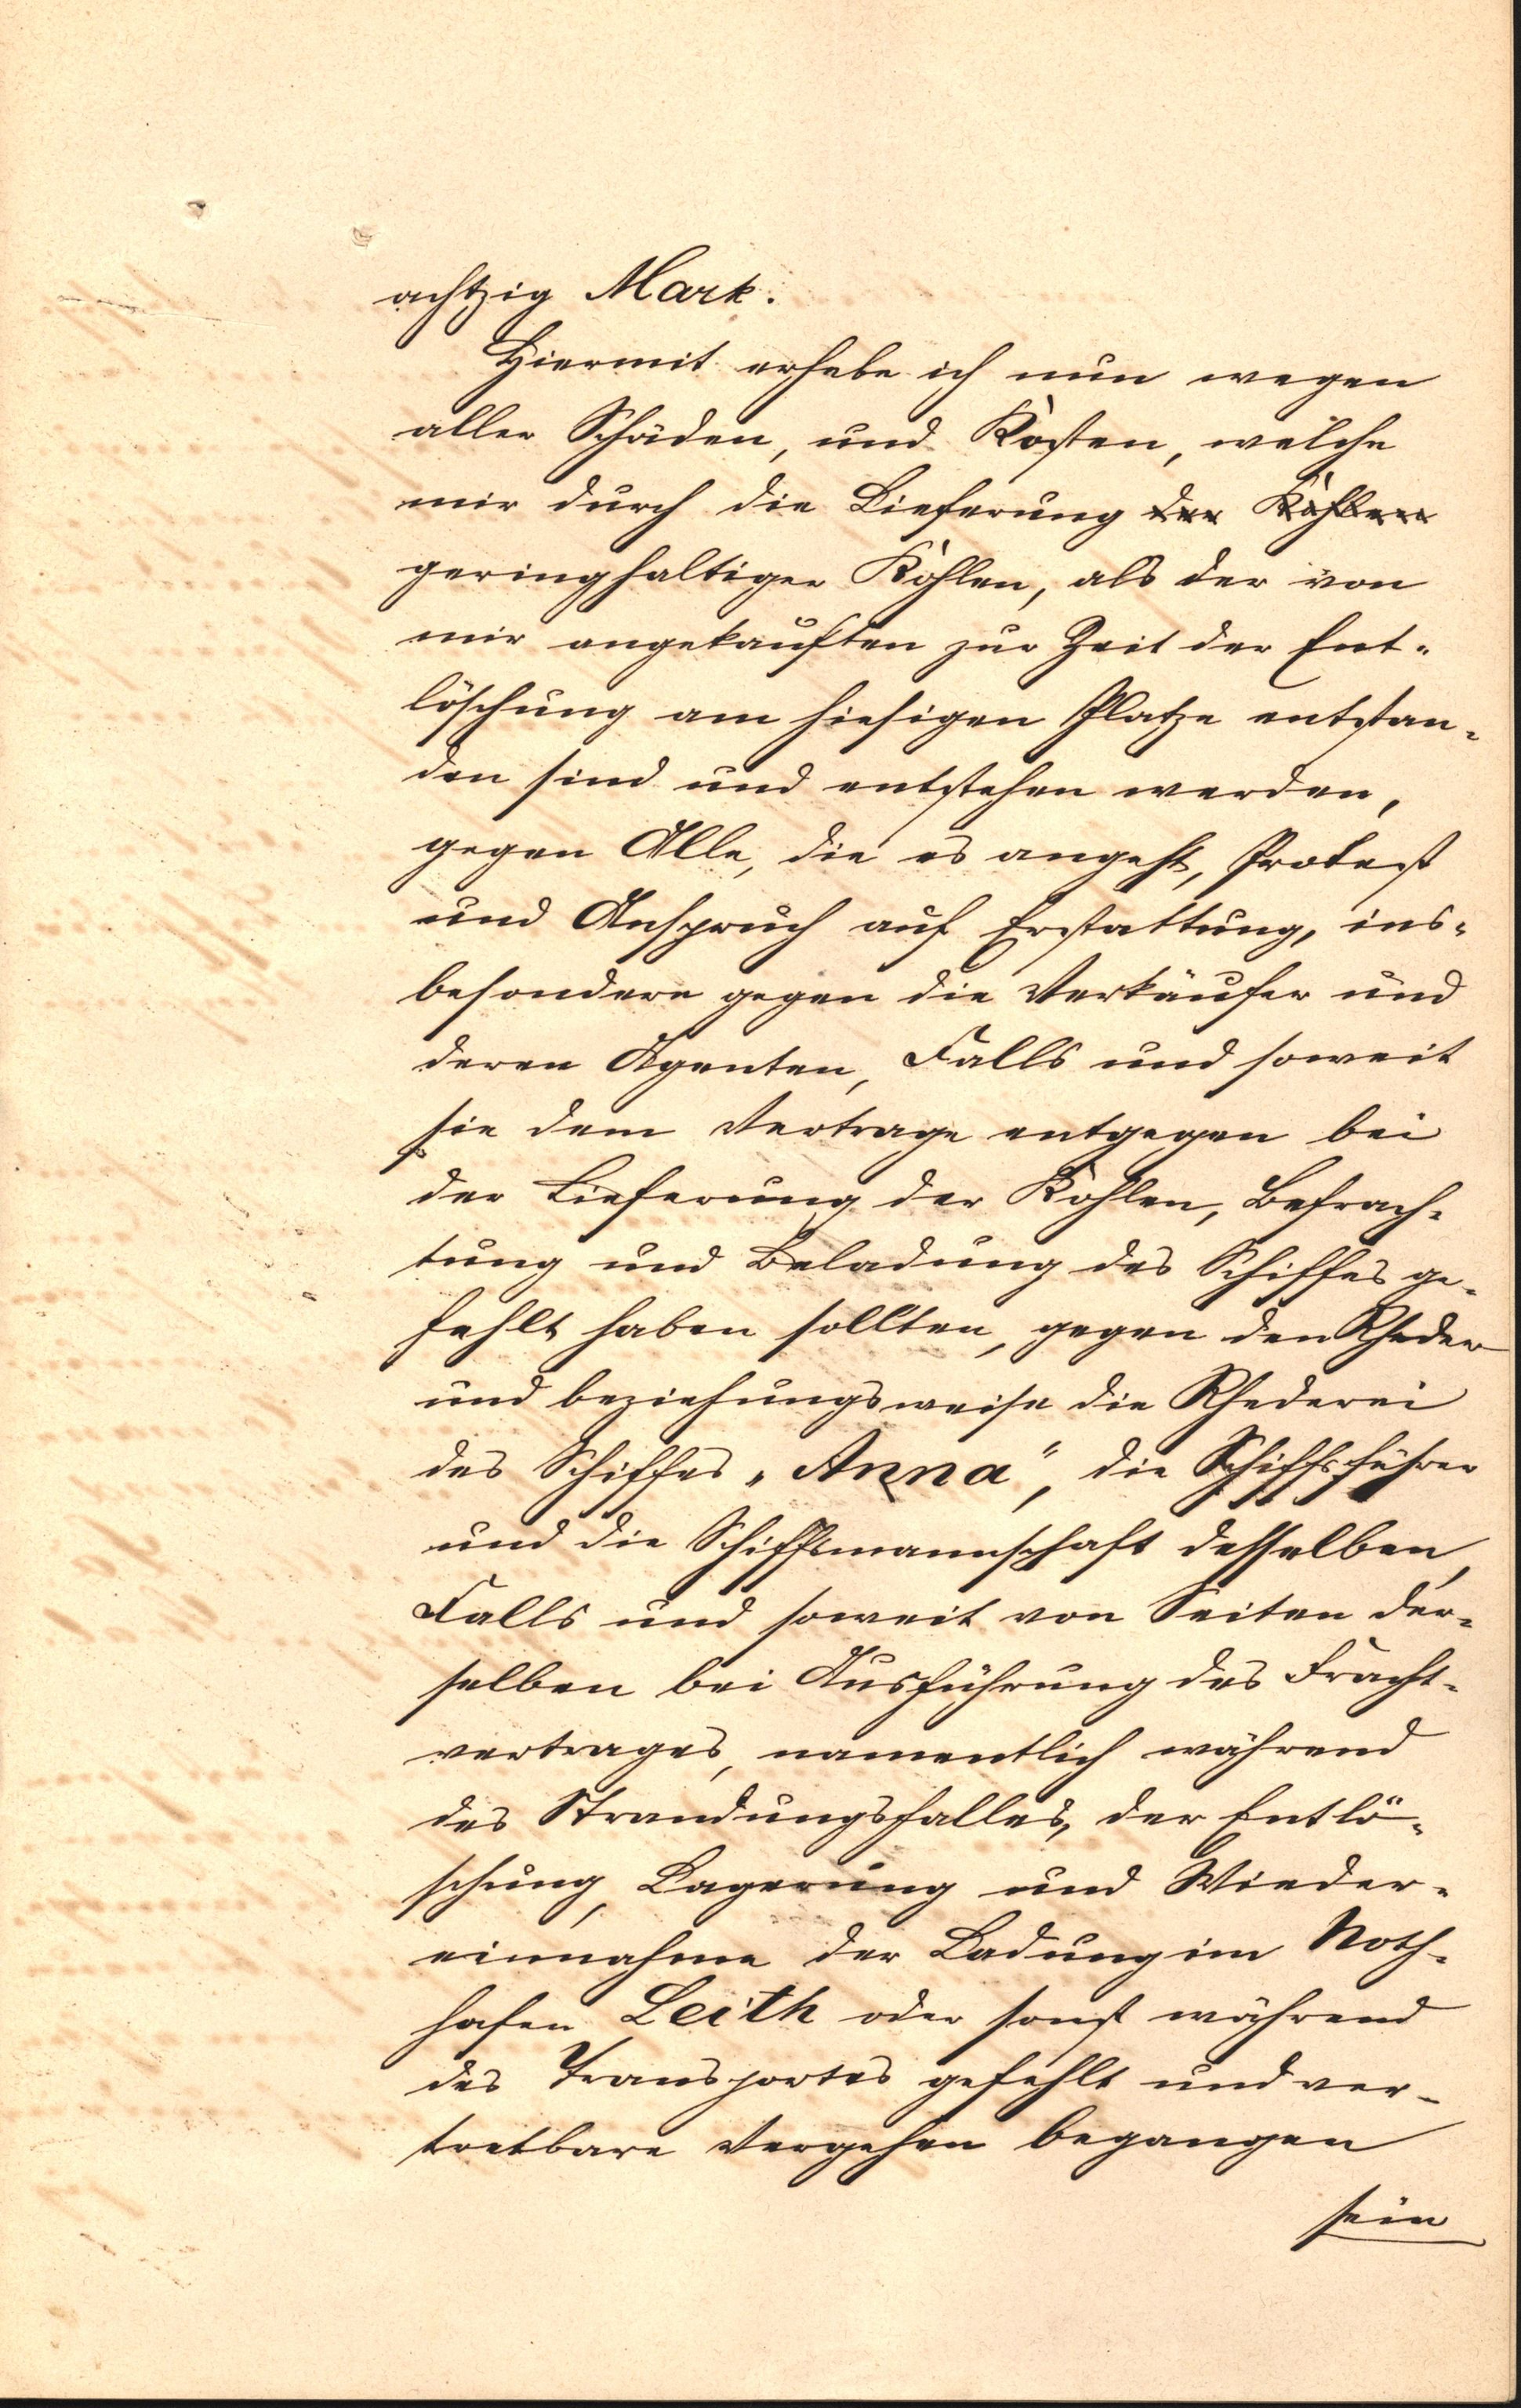 achtzig Mark.
Hiermit erhebe ich nun wegen
aller Schäden, und Kosten, welche
mir durch die Lieferung der Kohlen
geringhaltiger Kohlen, als der von
mir angekauften zur Zeit der Ent-
löschung am hiesigen Platze entstan-
den sind und entstehen werden,
gegen Alle, die es angeht, Protest
und Anspruch auf Erstattung, ins-
besondere gegen die Verkäufer und
deren Agenten, Falls und soweit
sie dem Vertrage entgegen bei
der Lieferung der Kohlen, Befrach-
tung und Beladung des Schiffes ge-
fehlt haben sollten, gegen den Rheder
und beziehungsweise die Rhederei
des Schiffes „Anna“, die Schiffsführer
und die Schiffsmannschaft desselben,
Falls und soweit von Seiten der-
selben bei Ausführung des Fracht-
vertrages, namentlich während
des Strandungsfalles, der Entlö-
schung, Lagerung und Wieder-
einnahme der Ladung im Noth-
hafen Leith oder sonst während
des Transportes gefehlt und ver-
tretbare Vergehen begangen
sein